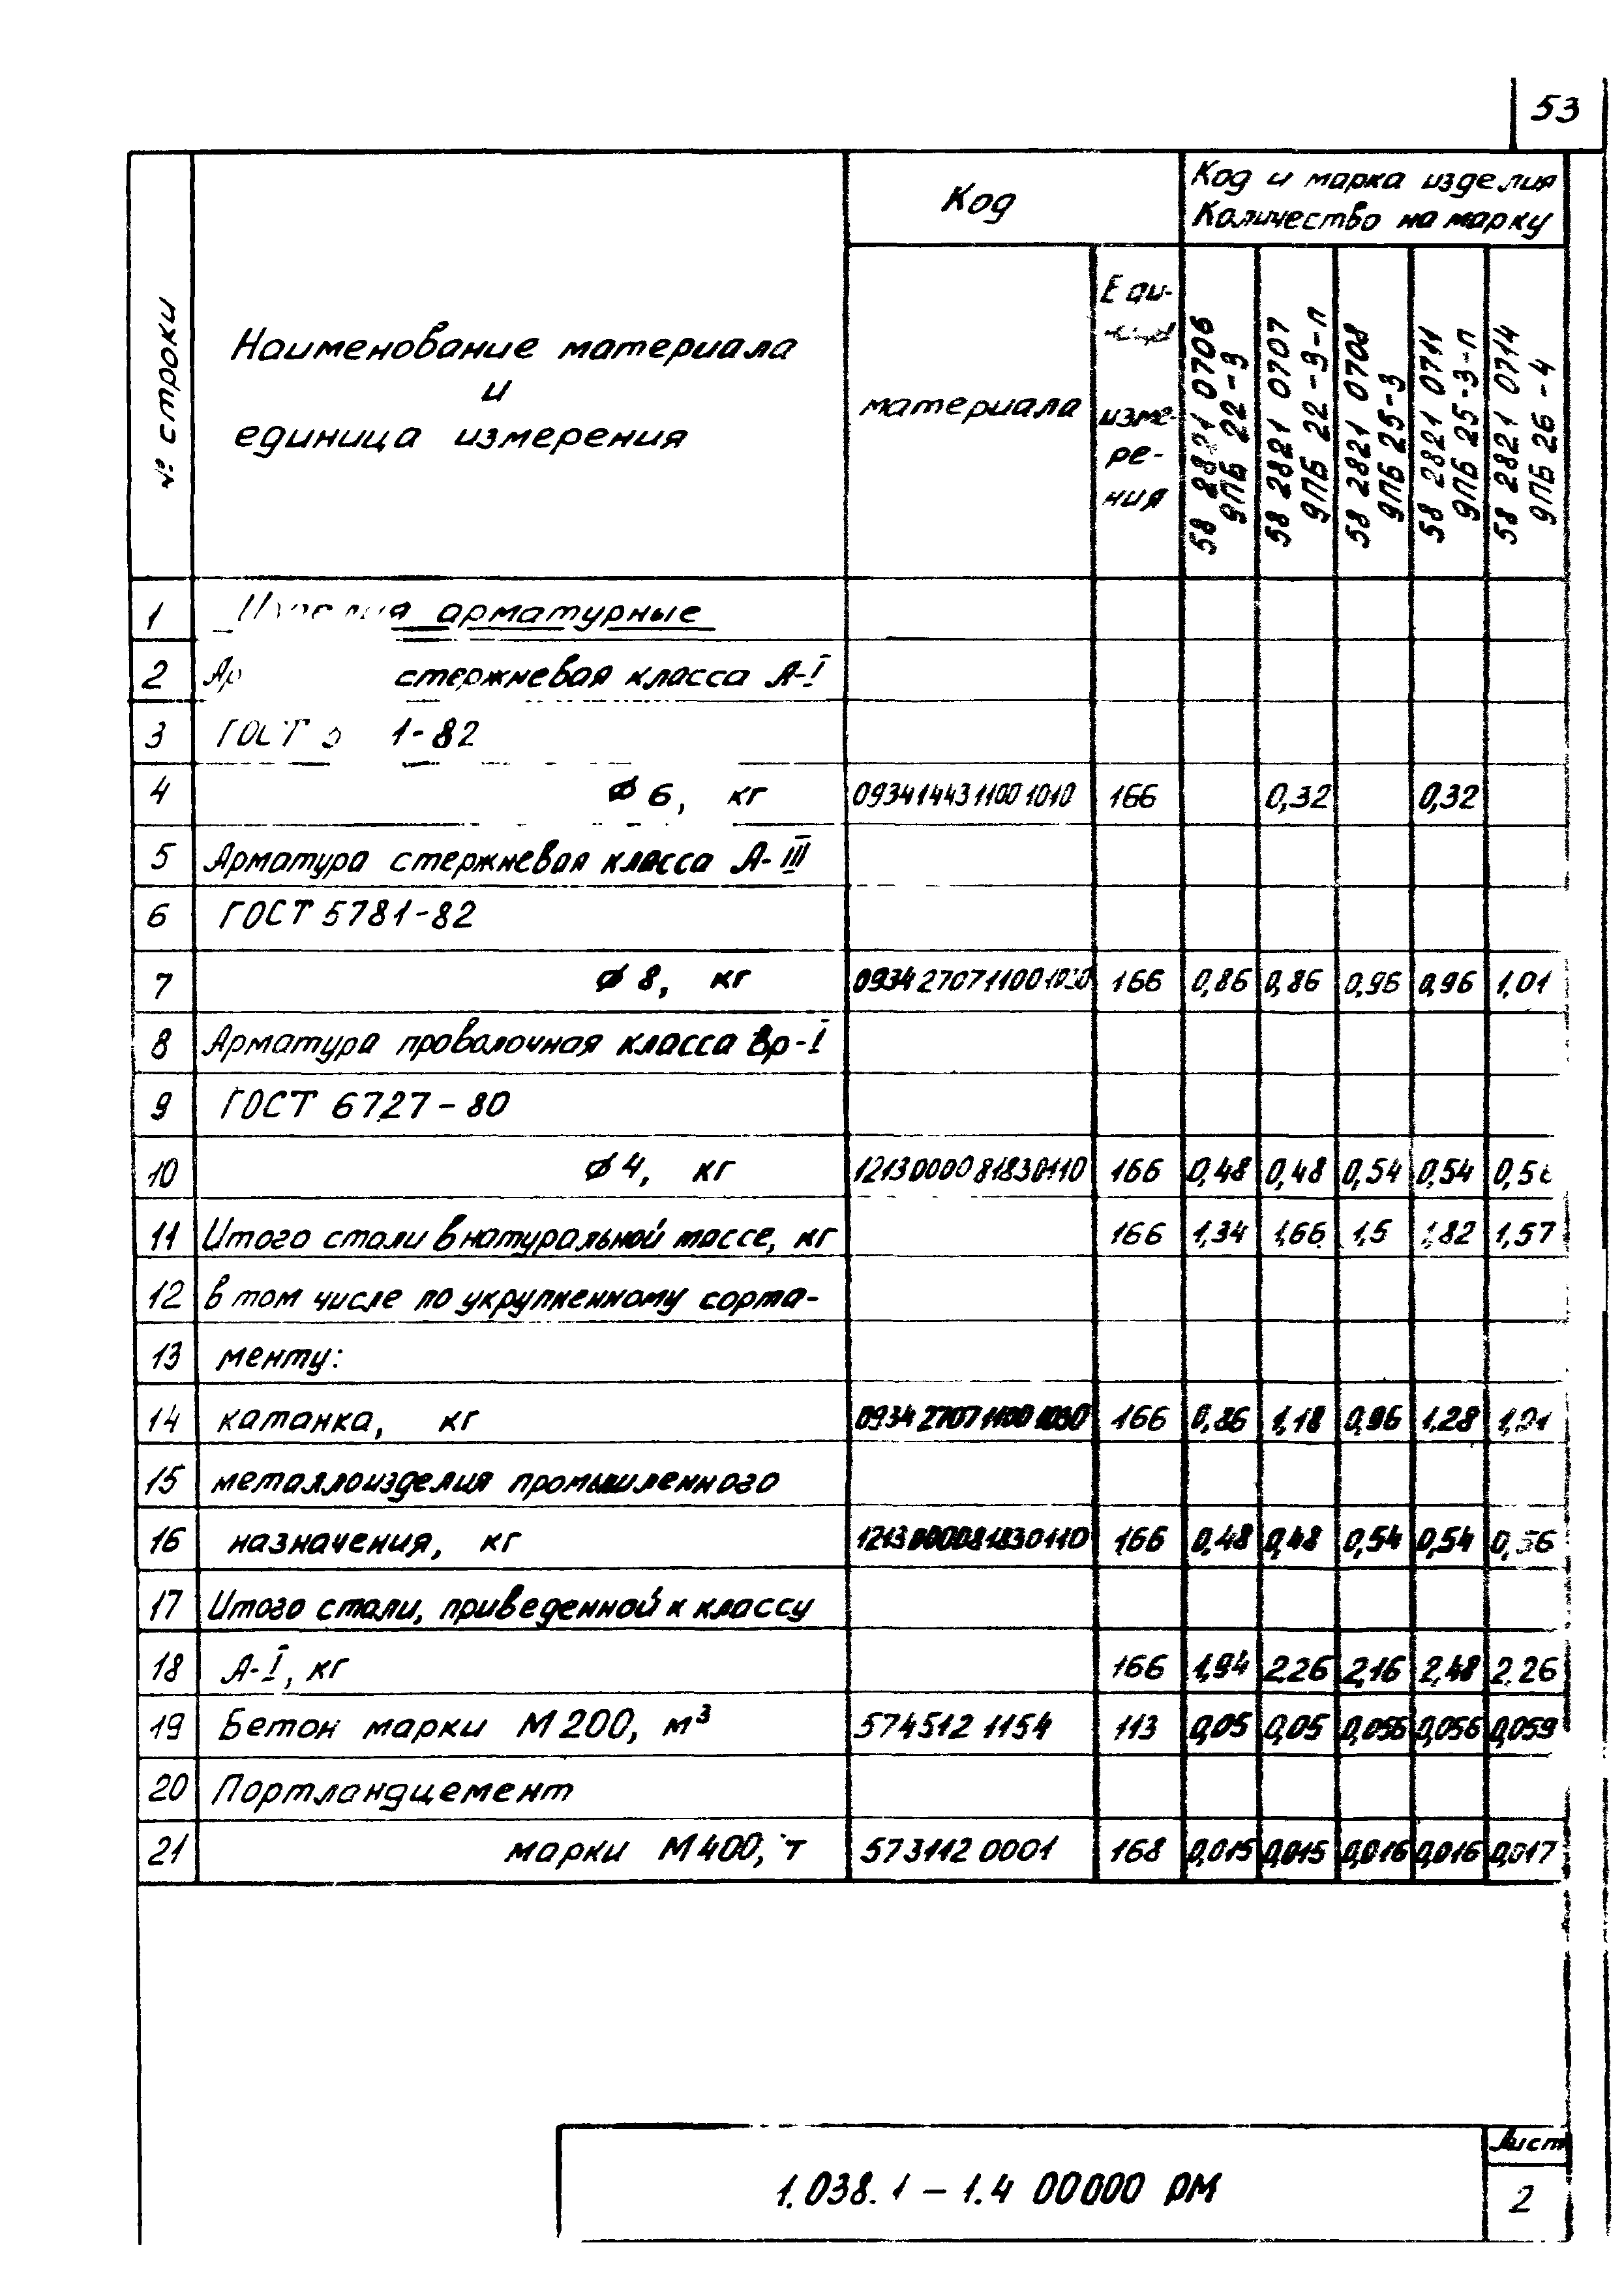 53
№ строки
Наименование материала
и
единица измерения
Код
материала
Еди-
изме-
ре-
ния
Код и марка изделия
Количество на марку
58 2821 0706
9ПБ 22-3
58 2821 0707
9ПБ 22-3-п
58 2821 0708
9ПБ 25-3
58 2821 0711
9ПБ 25-3-п
58 2821 0714
9ПБ 26-4
1 арматурные
2 стержневая класса А-I
3 ГОСТ 1-82
4 ⌀ 6, кг 0934144311001010 166 0,32 0,32
5 Арматура стержневая класса А-III
6 ГОСТ 5781-82
7 ⌀ 8, кг 0934270711001030 166 0,86 0,86 0,96 0,96 1,01
8 Арматура проволочная класса Вр-I
9 ГОСТ 6727-80
10 ⌀ 4, кг 1213000081830110 166 0,48 0,48 0,54 0,54
11 Итого стали в натуральной массе, кг 166 1,34 1,66 1,5 1,82 1,57
12 в том числе по укрупненному сорта-
13 менту:
14 катанка, кг 0934270711001030 166 0,86 1,18 0,96 1,28 1,01
15 металлоизделия промышленного
16 назначения, кг 1213000081830110 166 0,48 0,48 0,54 0,54 0,56
17 Итого стали, приведенной к классу
18 А-I, кг 166 1,94 2,26 2,16 2,48 2,26
19 Бетон марки М 200, м³ 574512 1154 113 0,05 0,05 0,056 0,056 0,059
20 Портландцемент
21 марки М 400, т 573112 0001 168 0,015 0,015 0,016 0,016 0,017
1.038.1-1.4 00000 РМ
Лист
2